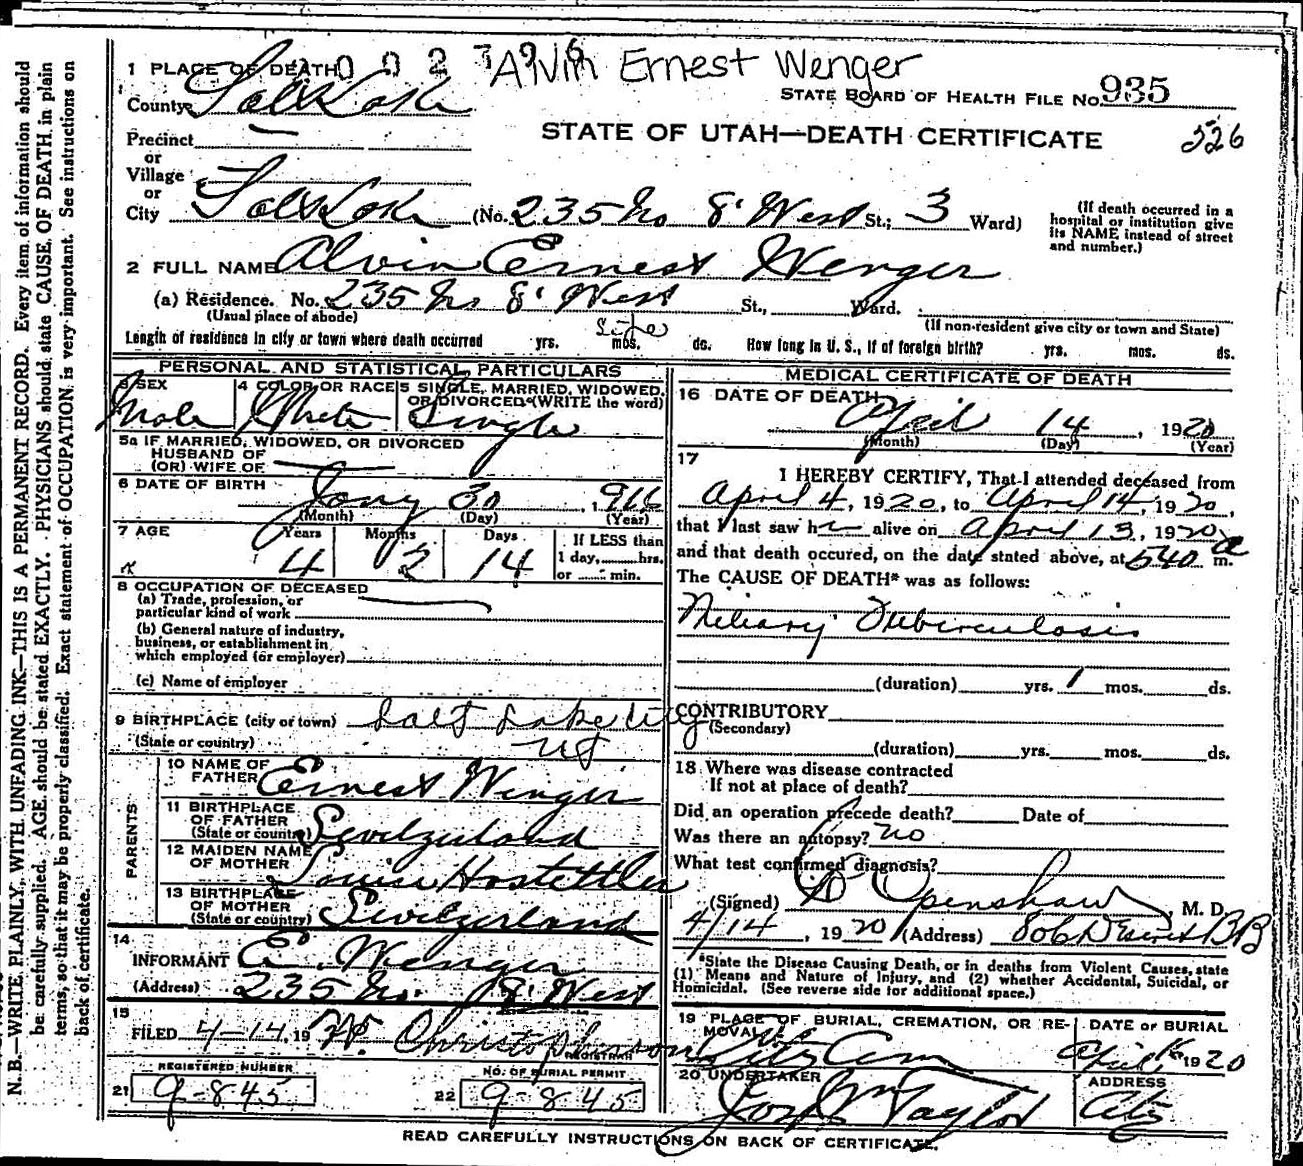 N. B.—WRITE PLAINLY, WITH UNFADING INK—THIS IS A PERMANENT RECORD. Every item of information should
be carefully supplied. AGE should be stated EXACTLY. PHYSICIANS should state CAUSE OF DEATH in plain
terms, so that it may be properly classified. Exact statement of OCCUPATION is very important. See instructions on
back of certificate.
Alvin Ernest Wenger
1 PLACE OF DEATH
County Salt Lake
STATE BOARD OF HEALTH FILE No. 935
Precinct
STATE OF UTAH—DEATH CERTIFICATE
526
or
Village
or
City Salt Lake (No. 235 No 8' West St.; 3 Ward)
(If death occurred in a
hospital or institution give
its NAME instead of street
and number.)
2 FULL NAME Alvin Ernest Wenger
(a) Residence. No. 235 No 8' West St., Ward.
(Usual place of abode)
(If non-resident give city or town and State)
Length of residence in city or town where death occurred yrs. mos. ds. How long in U. S., if of foreign birth? yrs. mos. ds.
life
PERSONAL AND STATISTICAL PARTICULARS
3 SEX 4 COLOR OR RACE 5 SINGLE, MARRIED, WIDOWED,
OR DIVORCED (WRITE the word)
Male White Single
5a IF MARRIED, WIDOWED, OR DIVORCED
HUSBAND OF
(OR) WIFE OF
6 DATE OF BIRTH Jany 30, 1916
(Month) (Day) (Year)
7 AGE Years Months Days If LESS than
1 day, hrs.
or min.
4 2 14
8 OCCUPATION OF DECEASED
(a) Trade, profession, or
particular kind of work
(b) General nature of industry,
business, or establishment in
which employed (or employer)
(c) Name of employer
9 BIRTHPLACE (city or town) Salt Lake City
(State or country) Ut
PARENTS
10 NAME OF
FATHER Ernest Wenger
11 BIRTHPLACE
OF FATHER
(State or country) Switzerland
12 MAIDEN NAME
OF MOTHER Louise Hostettler
13 BIRTHPLACE
OF MOTHER
(State or country) Switzerland
14
INFORMANT E. Wenger
(Address) 235 No. 8' West
15
FILED 4-14, 19 W. Christopherson
REGISTRAR
REGISTERED NUMBER
21 9-845
NO. OF BURIAL PERMIT
22 9-845
MEDICAL CERTIFICATE OF DEATH
16 DATE OF DEATH
April 14, 1920
(Month) (Day) (Year)
17
I HEREBY CERTIFY, That I attended deceased from
April 4, 1920, to April 14, 1920,
that I last saw h alive on April 13, 1920
and that death occured, on the date stated above, at 540 a m.
The CAUSE OF DEATH* was as follows:
Miliary Tuberculosis
(duration) yrs. 1 mos. ds.
CONTRIBUTORY
(Secondary)
(duration) yrs. mos. ds.
18 Where was disease contracted
If not at place of death?
Did an operation precede death? Date of
Was there an autopsy? no
What test confirmed diagnosis?
(Signed) Openshaw, M. D.
4/14, 1920 (Address) 806 Deseret BB
*State the Disease Causing Death, or in deaths from Violent Causes, state
(1) Means and Nature of Injury, and (2) whether Accidental, Suicidal, or
Homicidal. (See reverse side for additional space.)
19 PLACE OF BURIAL, CREMATION, OR RE-
MOVAL
City Cem
DATE OF BURIAL
April 16 1920
20 UNDERTAKER
Jos Wm Taylor
ADDRESS
City
READ CAREFULLY INSTRUCTIONS ON BACK OF CERTIFICATE.